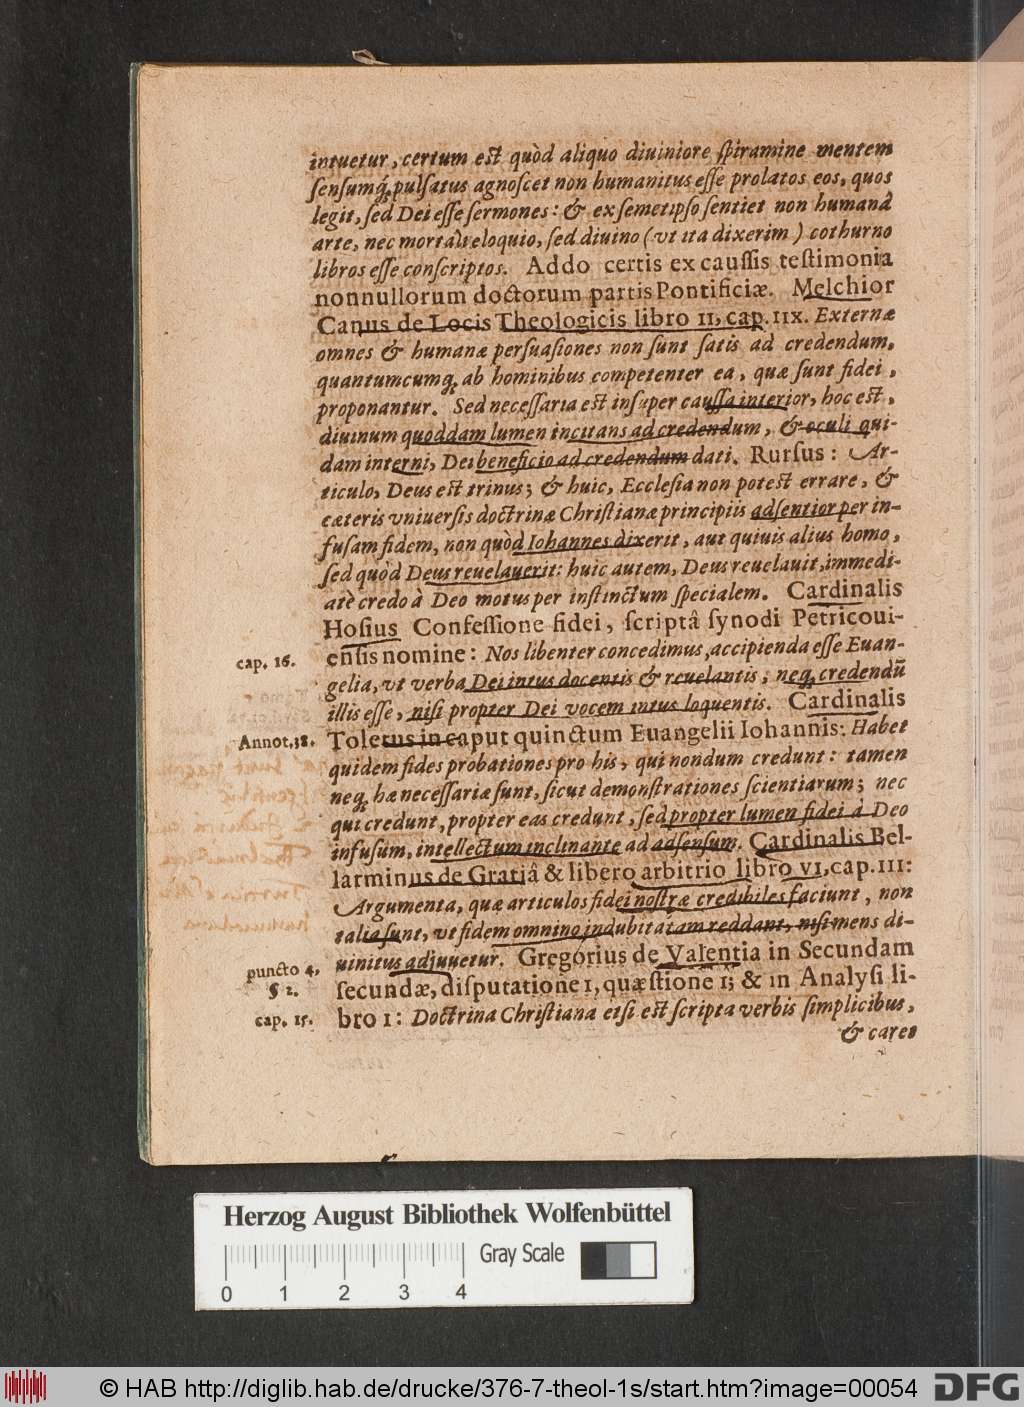 intuetur, certum est quòd aliquo diuiniore spiramine mentem
sensumq́, pulsatus agnoscet non humanitus esse prolatos eos, quos
legit, sed Dei esse sermones: & ex semetipso sentiet non humanâ
arte, nec mortali eloquio, sed diuino (vt ita dixerim) cothurno
libros esse conscriptos. Addo certis ex caussis testimonia
nonnullorum doctorum partis Pontificiæ. Melchior
Canus de Locis Theologicis libro II, cap. IIX. Externæ
omnes & humanæ persuasiones non sunt satis ad credendum,
quantumcumq́, ab hominibus competenter ea, quæ sunt fidei,
proponantur. Sed necessaria est insuper caussa interior, hoc est,
diuinum quoddam lumen incitans ad credendum, & oculi qui-
dam interni, Dei beneficio ad credendum dati. Rursus: Ar-
ticulo, Deus est trinus; & huic, Ecclesia non potest errare, &
cæteris vniuersis doctrinæ Christianæ principiis adsentior per in-
fusam fidem, non quòd Iohannes dixerit, aut quiuis alius homo,
sed quòd Deus reuelauerit: huic autem, Deus reuelauit, immedi-
atè credo à Deo motus per instinctum specialem. Cardinalis
Hosius Confessione fidei, scriptâ synodi Petricoui-
cap. 16. ensis nomine: Nos libenter concedimus, accipienda esse Euan-
gelia, vt verba Dei intus docentis & reuelantis, neq́, credendū
illis esse, nisi propter Dei vocem intus loquentis. Cardinalis
Annot. 38. Toletus in caput quinctum Euangelii Iohannis: Habet
quidem fides probationes pro his, qui nondum credunt: tamen
neq́, hæ necessariæ sunt, sicut demonstrationes scientiarum; nec
qui credunt, propter eas credunt, sed propter lumen fidei à Deo
infusum, intellectum inclinante ad adsensum. Cardinalis Bel-
larminus de Gratiâ & libero arbitrio libro VI, cap. III:
Argumenta, quæ articulos fidei nostræ credibiles faciunt, non
talia sunt, vt fidem omnino indubitatam reddant, nisi mens di-
uinitus adjuuetur. Gregorius de Valentia in Secundam
puncto 4,
§ 2. secundæ, disputatione I, quæstione I; & in Analysi li-
cap. 15. bro I: Doctrina Christiana etsi est scripta verbis simplicibus,
& caret
Herzog August Bibliothek Wolfenbüttel
Gray Scale
0 1 2 3 4
© HAB http://diglib.hab.de/drucke/376-7-theol-1s/start.htm?image=00054
DFG